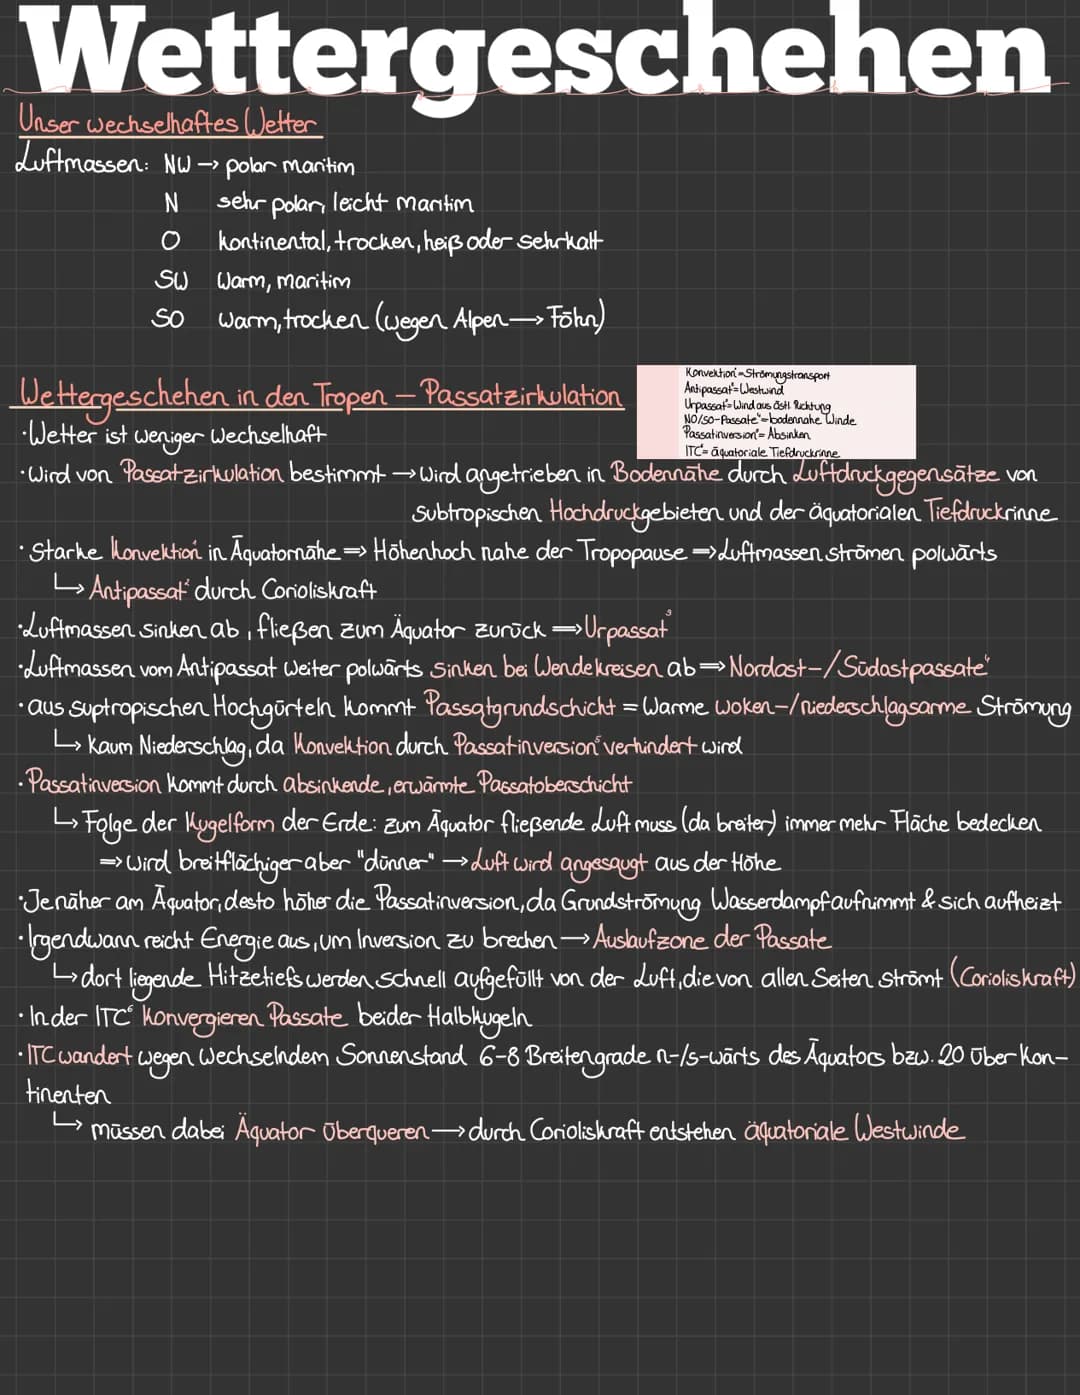 Wettergeschehen
Unser wechselhaftes Wetter
Luftmassen: NW → polar maritim
N sehr polar, leicht maritim
O kontinental, trocken, heiß oder sehr kalt
SW Warm, maritim
SO warm, trocken (wegen Alpen → Föhn)
Wettergeschehen in den Tropen – Passatzirkulation
Konvektion¹=Strömungstransport
Antipassat²=Westwind
Urpassat³=Wind aus östl. Richtung
NO/SO-Passate⁴=bodennahe Winde
Passatinversion⁵=Absinken
ITC⁶=äquatoriale Tiefdruckrinne
·Wetter ist weniger wechselhaft
·Wird von Passatzirkulation bestimmt → Wird angetrieben in Bodennähe durch Luftdruckgegensätze von
subtropischen Hochdruckgebieten und der äquatorialen Tiefdruckrinne
·Starke Konvektion¹ in Äquatornähe ⇒ Höhenhoch nahe der Tropopause ⇒ Luftmassen strömen polwärts
↳ Antipassat² durch Corioliskraft
·Luftmassen sinken ab, fließen zum Äquator zurück ⇒ Urpassat³
·Luftmassen vom Antipassat weiter polwärts sinken bei Wendekreisen ab ⇒ Nordost-/Südostpassate⁴
·aus suptropischen Hochgürteln kommt Passatgrundschicht = Warme woken-/niederschlagsarme Strömung
↳ Kaum Niederschlag, da Konvektion durch Passatinversion⁵ verhindert wird
·Passatinversion kommt durch absinkende, erwärmte Passatoberschicht
↳ Folge der Kugelform der Erde: zum Äquator fließende Luft muss (da breiter) immer mehr Fläche bedecken
⇒ wird breitflächiger aber "dünner" → Luft wird angesaugt aus der Höhe
·Je näher am Äquator, desto höher die Passatinversion, da Grundströmung Wasserdampf aufnimmt & sich aufheizt
·Irgendwann reicht Energie aus, um Inversion zu brechen → Auslaufzone der Passate
↳ dort liegende Hitzetiefs werden schnell aufgefüllt von der Luft, die von allen Seiten strömt (Corioliskraft)
·In der ITC⁶ Konvergieren Passate beider Halbkugeln
·ITC wandert wegen wechselndem Sonnenstand 6-8 Breitengrade n-/s-wärts des Äquators bzw. 20 über Kon-
tinenten
↳ müssen dabei Äquator überqueren → durch Corioliskraft entstehen äquatoriale Westwinde